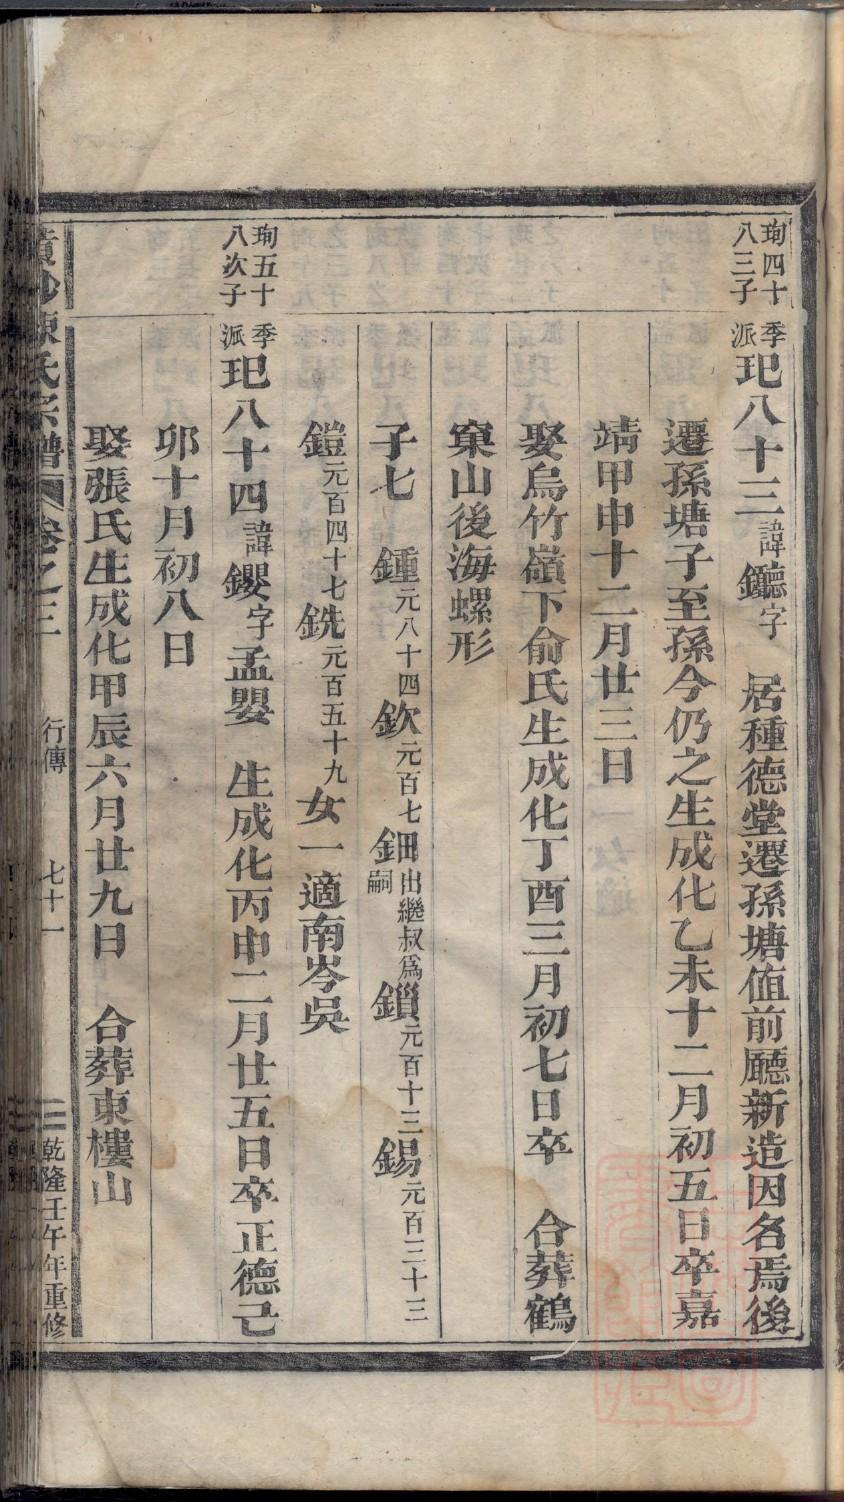 珣四十八三子
季派 玘八十三諱鑢字 居種德堂遷孫塘值前廳新造因名焉後
遷孫塘子至孫今仍之生成化乙未十二月初五日卒嘉
靖甲申十二月廿三日
娶烏竹嶺下俞氏生成化丁酉三月初七日卒 合葬鶴
窠山後海螺形
子七 鍾元八十四 欽元百七 鈿出繼叔爲嗣 鎖元百十三 錫元百三十三
鎧元百四十七 銑元百五十九 女一適南岑吳
珣五十八次子
季派 玘八十四諱鑍字孟嬰 生成化丙申二月廿五日卒正德己
卯十月初八日
娶張氏生成化甲辰六月廿九日 合葬東樓山
陳氏宗譜 卷之三 行傳 七十一 乾隆壬午年重修